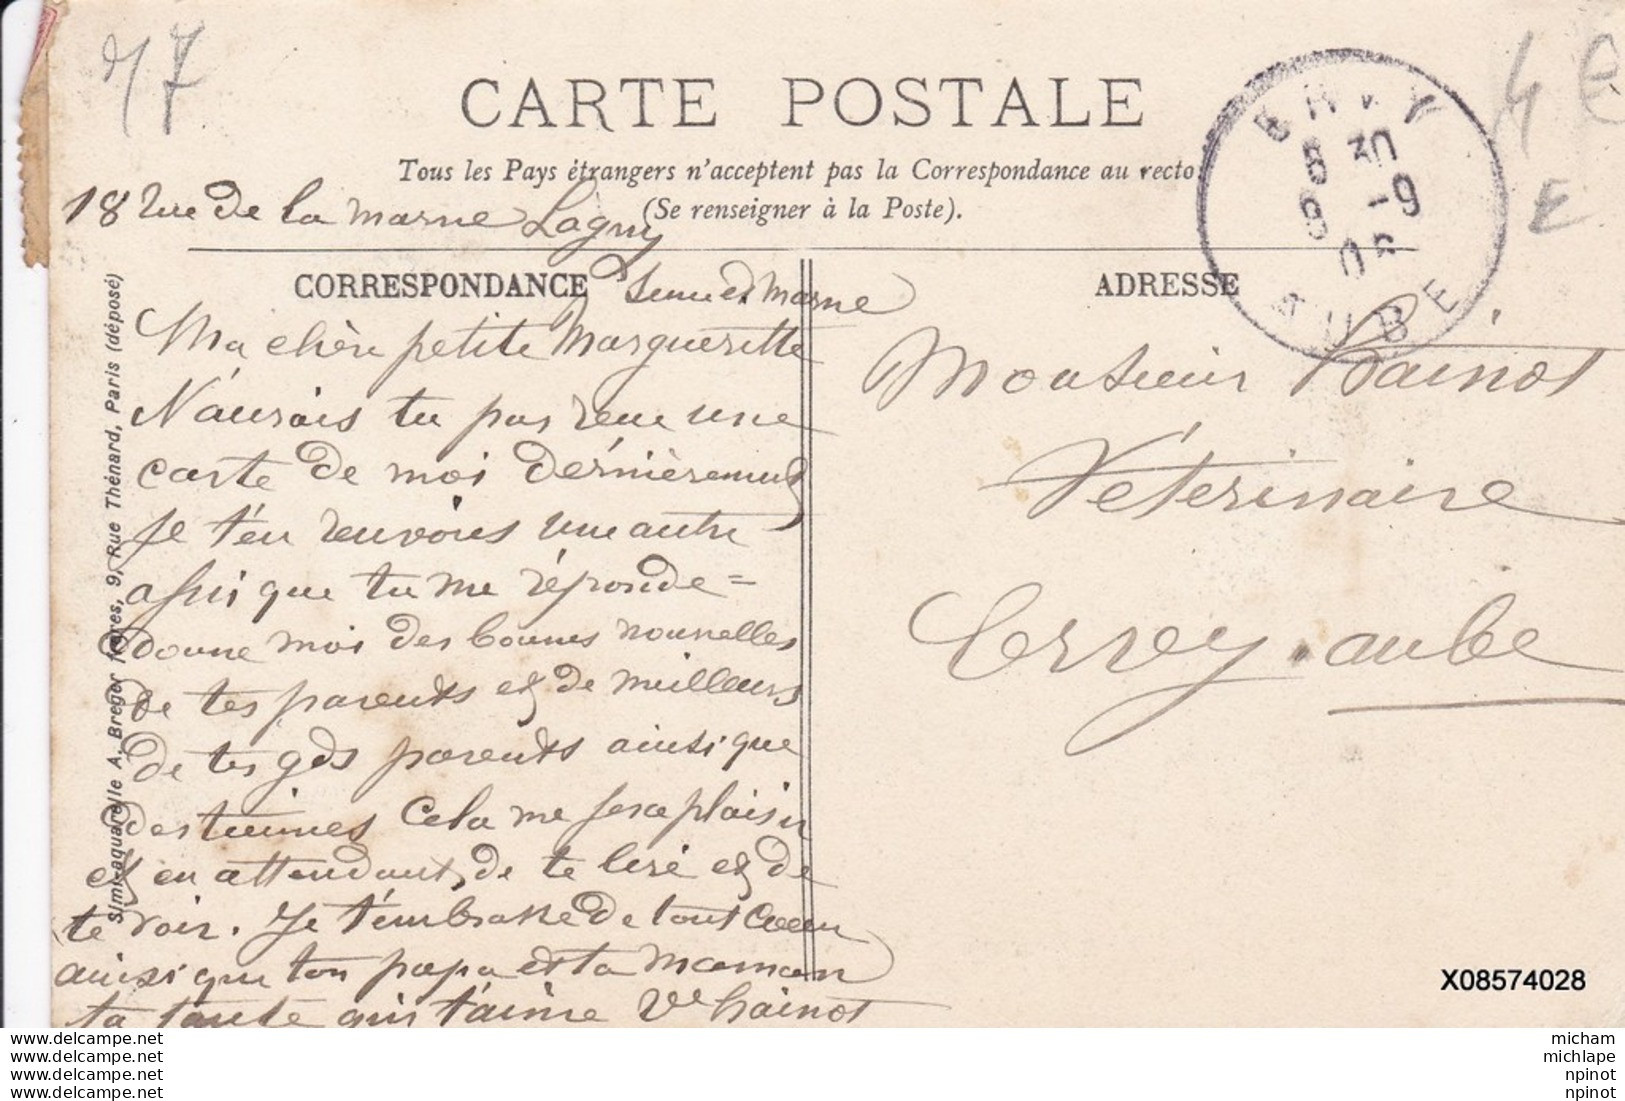 77
4 E
E
CARTE POSTALE
Tous les Pays étrangers n'acceptent pas la Correspondance au recto
(Se renseigner à la Poste).
ERVY
8 30
9 -9
06
AUBE
18 rue de la marne Lagny
Seine et marne
CORRESPONDANCE
ADRESSE
Ma chère petite Margueritte
N'aurais tu pas reçu une
carte de moi dérnièrement
Je t'en renvoies une autre
afin que tu me réponde =
donne moi des bonnes nouvelles
de tes parents et de meilleurs
de tes gds parents ainsi que
des tiennes Cela me fera plaisir
et en attendant de te lire et de
te voir. Je t'embrasse de tout Coeur
ainsi que ton papa et ta maman
ta tante qui t'aime Ve hainot
Monsieur hainot
Véterinaire
Cerrey. aube
Simili-aquarelle A. Breger frères, 9, Rue Thénard, Paris (déposé)
X08574028
micham micham
michlape michlape
npinot npinot
npinot npinot